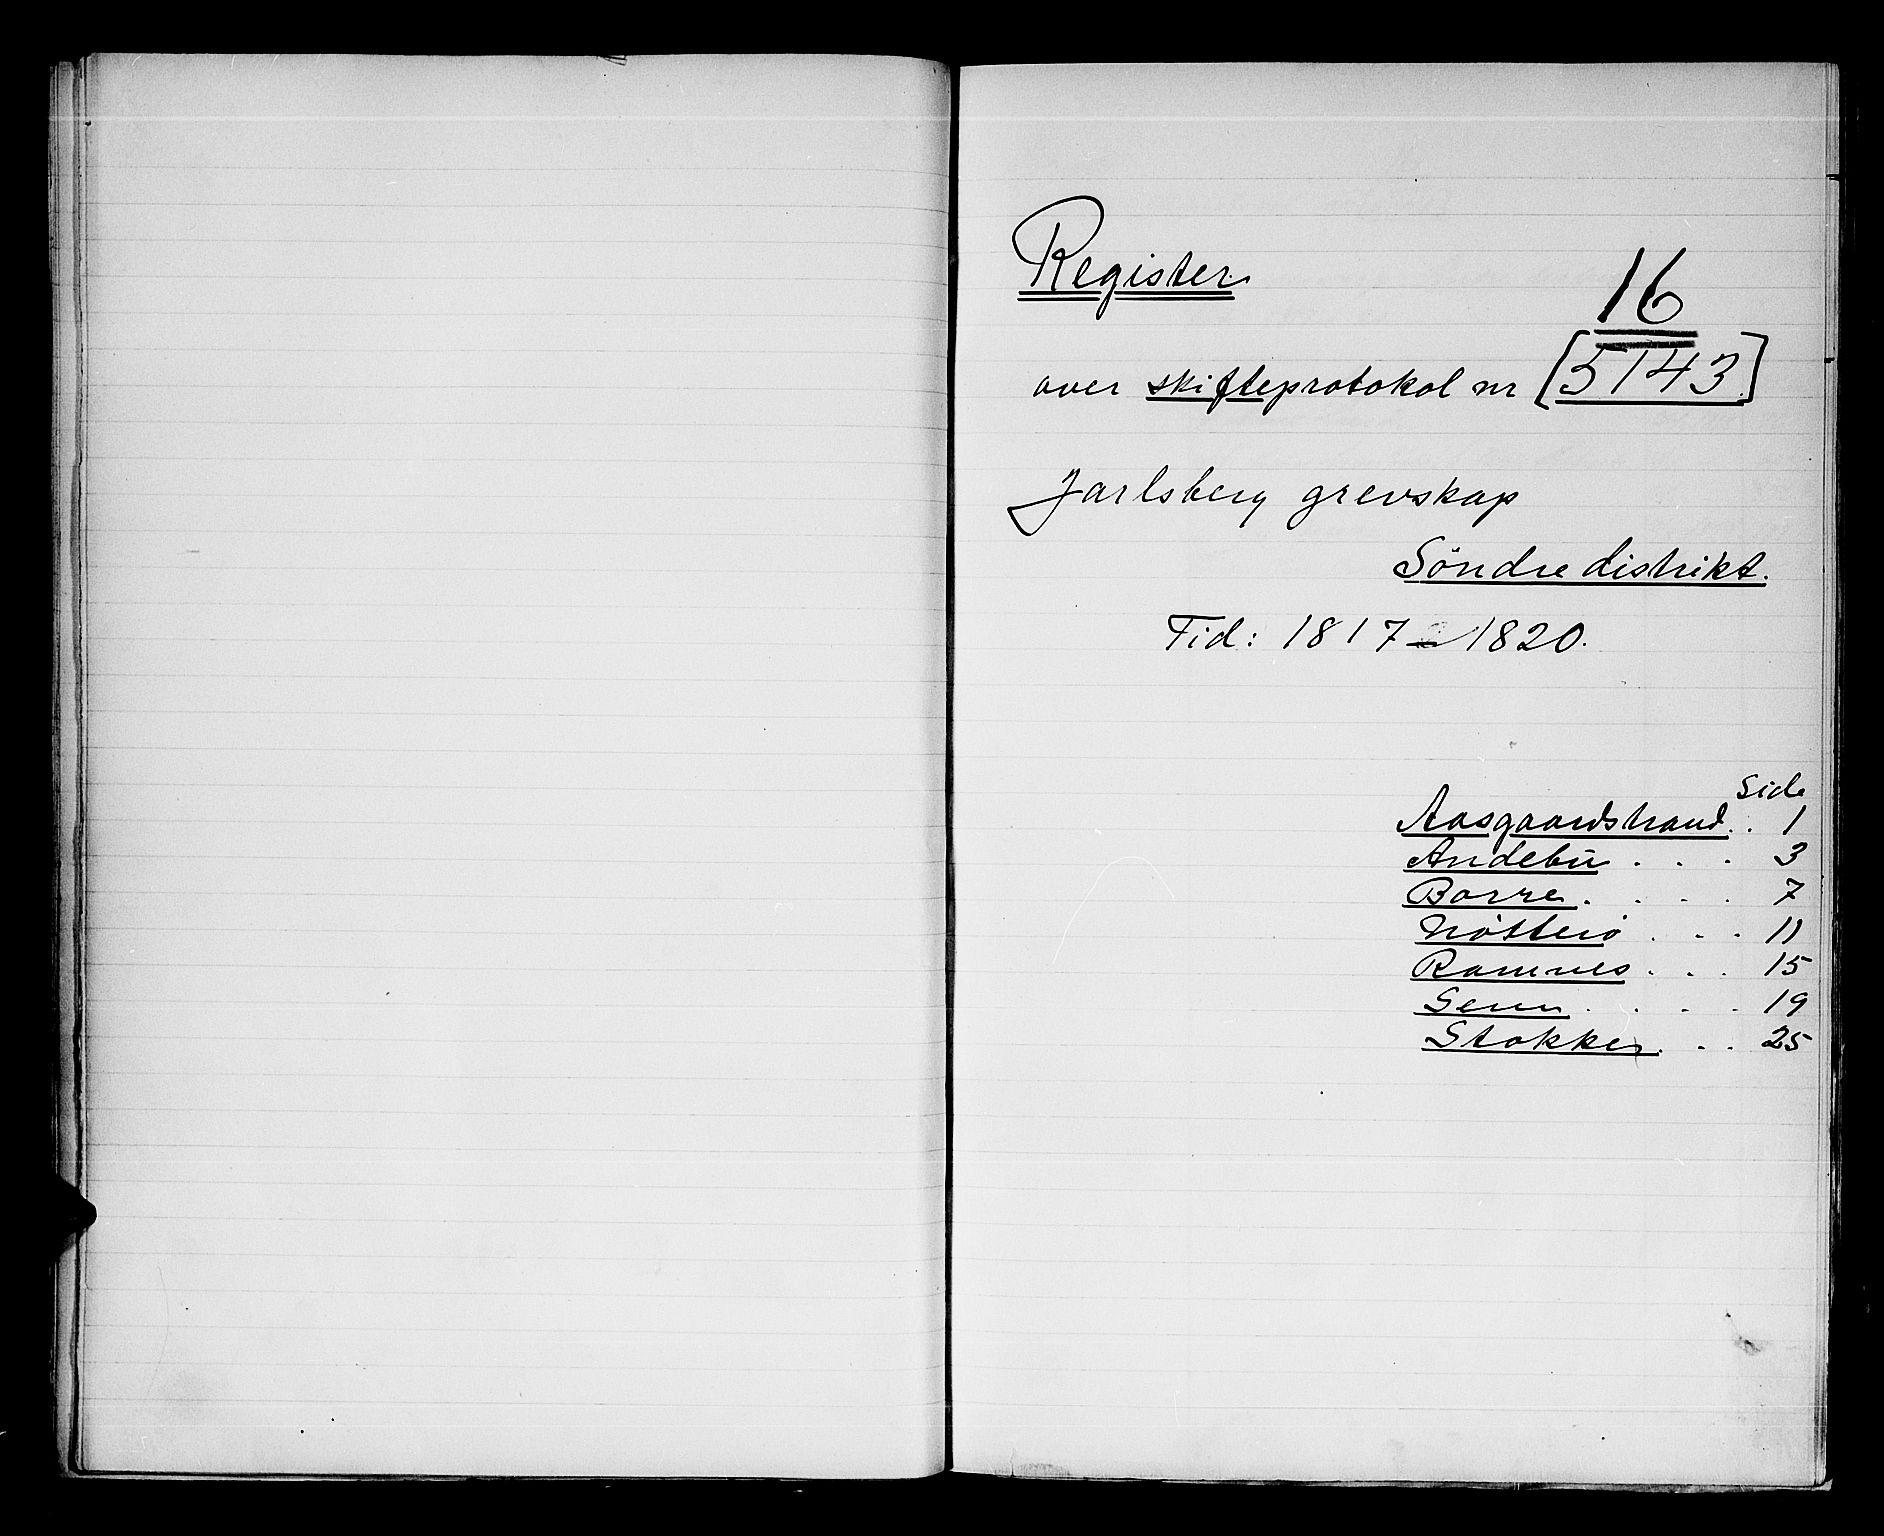 Register
16
over skifteprotokol nr [5143]
Jarlsberg grevskap
Söndre distrikt.
Tid: 1817 - 1820.
Side
Aasgaardstrand . . 1
Andebu . . . 3
Borre . . . . 7
Nötterö . . . 11
Ramnes . . . 15
Sem . . . . 19
Stokke . . . 25